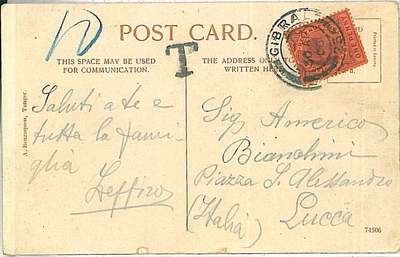 POST CARD.
THIS SPACE MAY BE USED
FOR COMMUNICATION.
THE ADDRESS O
WRITTEN HER
T
GIBRAL
ONE PENNY
A. Benzaquen, Tangier.
Printed in
Saluti a te e
tutta la fami-
glia
Sig Americo
Bianchini
Piazza S. Alessandro
(Italia) Lucca
74506